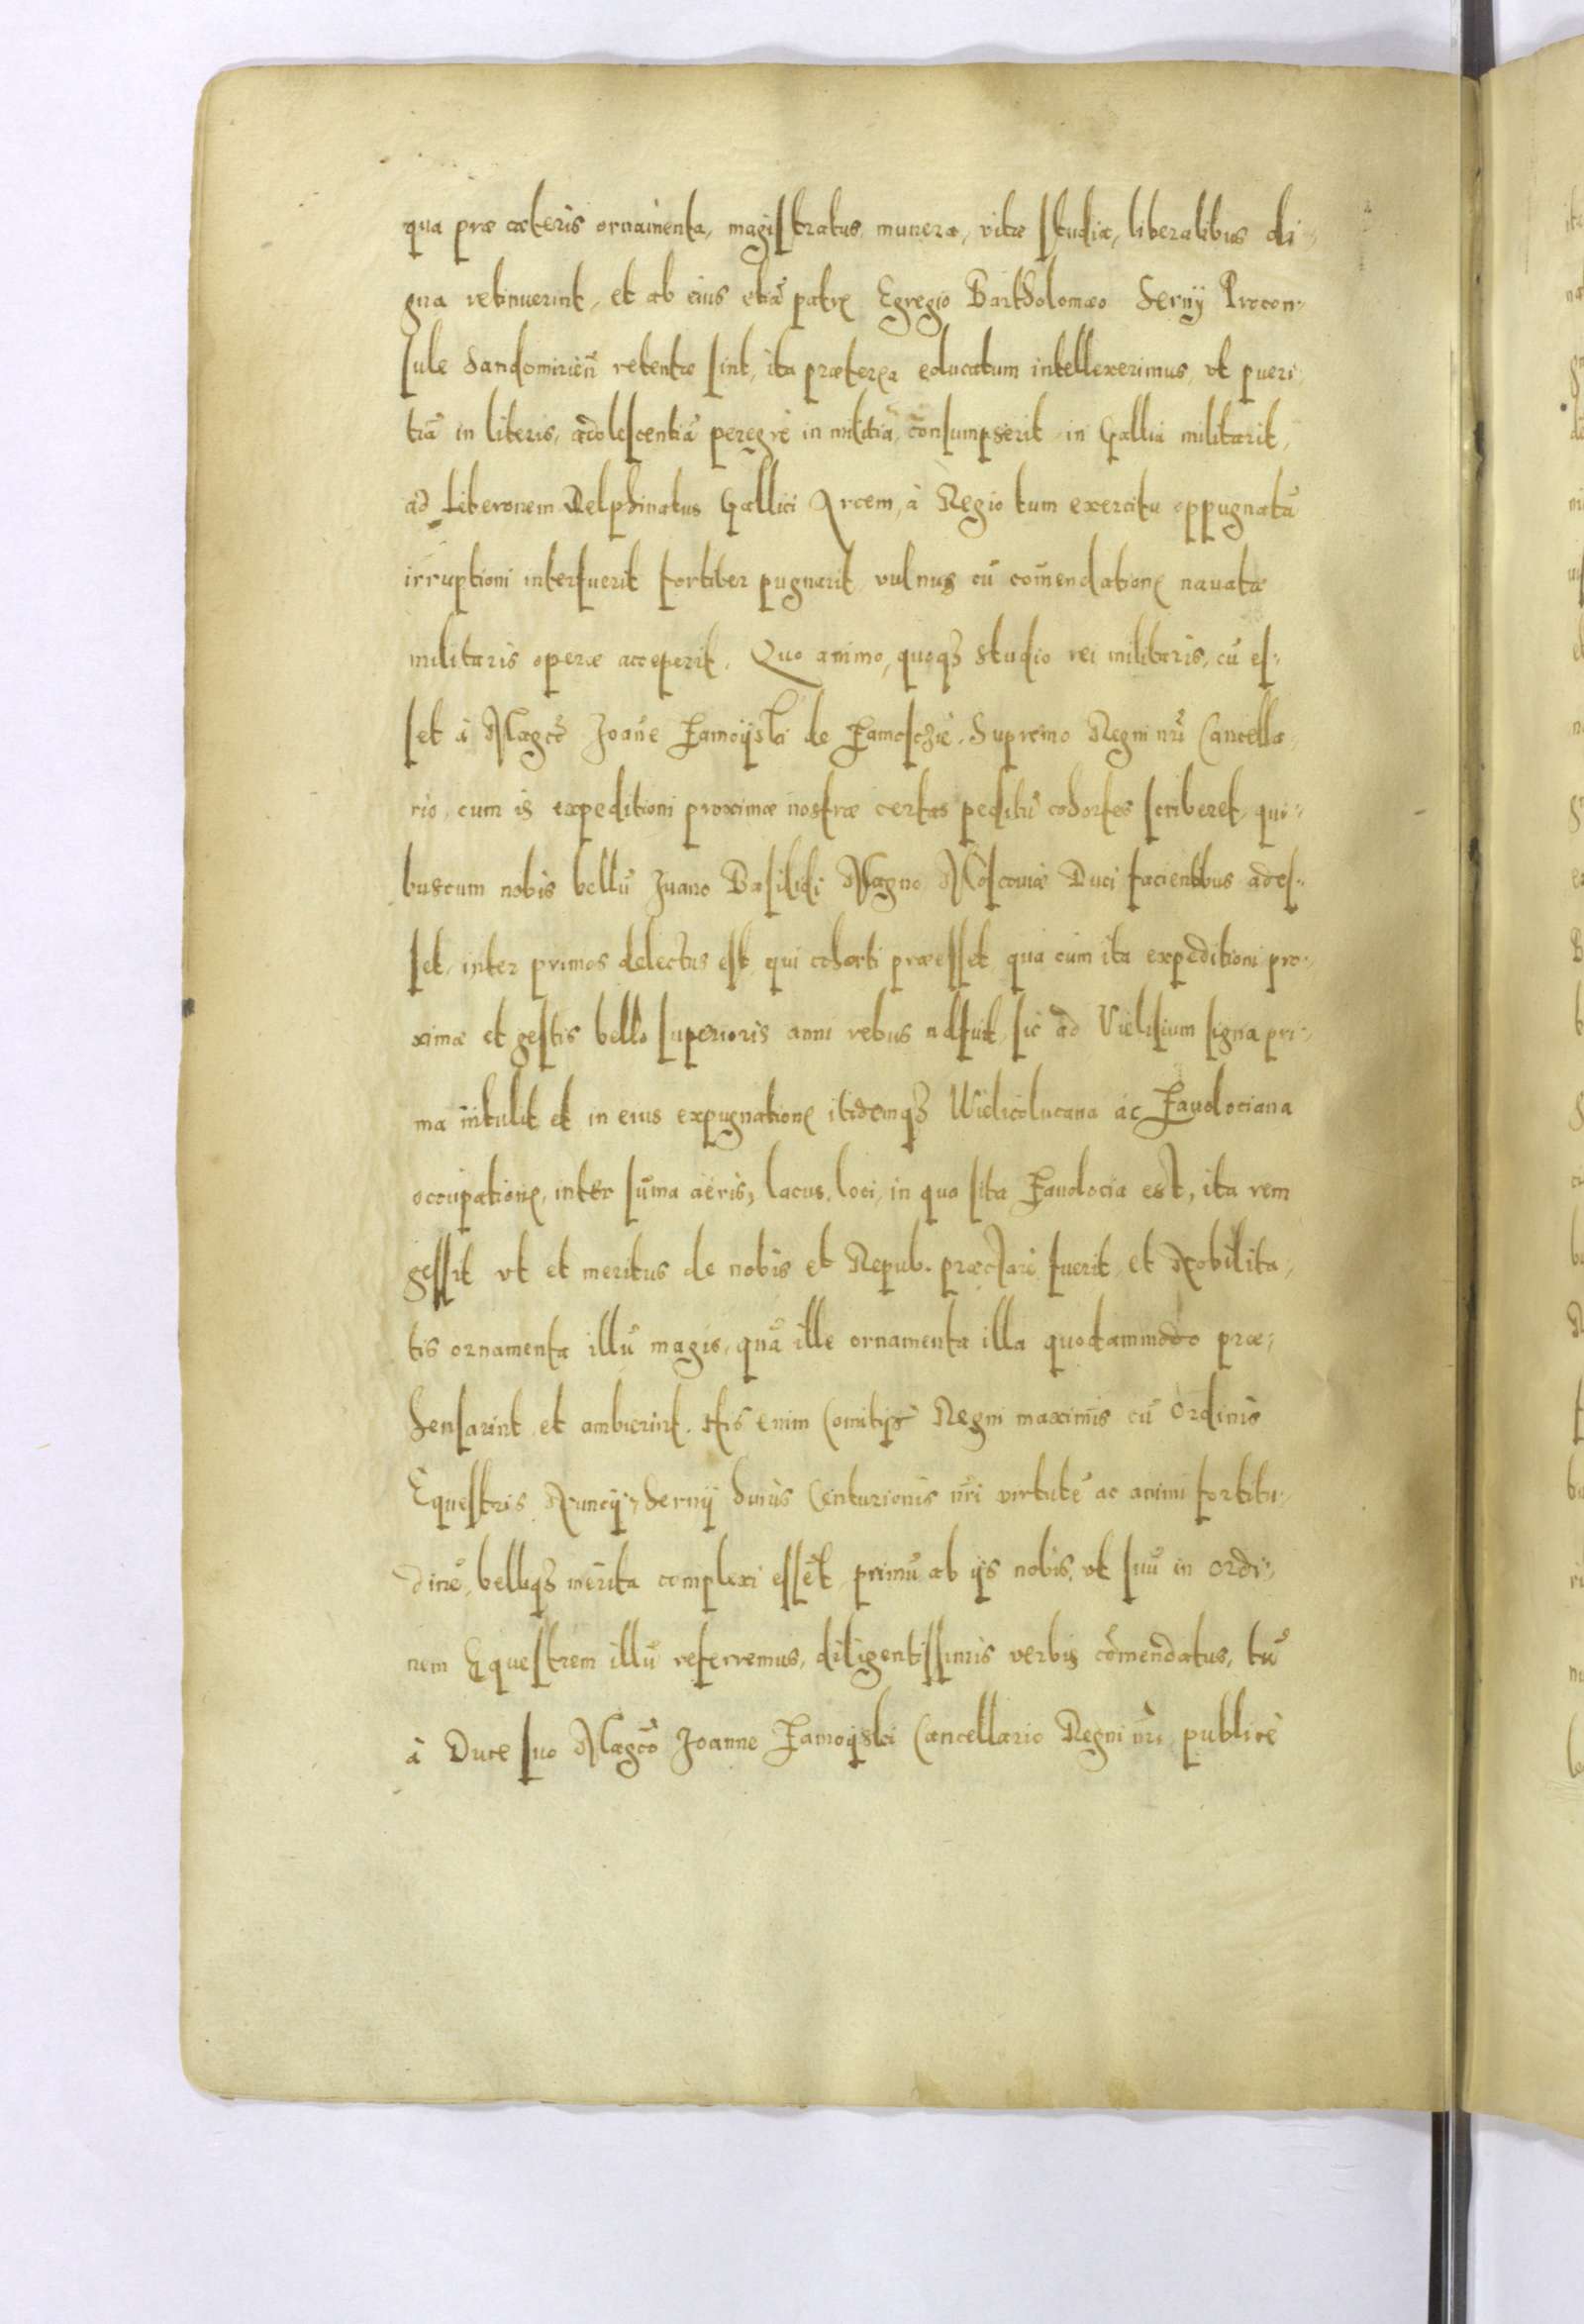 qua præ cæteris ornamenta, magistratus munera, vitæ studia, liberalibus di-
gna retinuerint, et ab eius etiã patre Egregio Bartholomæo Serny Procon-
sule Sandomirieñ retenta sint, ita præterea educatum intellexerimus, vt pueri
tiã in literis, adolescentiã peregrè in militia, consumpserit, in Gallia militarit,
ad Liberonem Delphinatus Gallici Arcem, à Regio tum exercitu oppugnatã
irruptioni interfuerit fortiter pugnarit vulnus cũ comẽndatione nauatæ
militaris operæ acceperit. Quo animo, quoqз studio rei militaris, cũ es-
set à Magcõ Joañe Zamoyski de Zamoschie, Supremo Regni nrĩ Cancella-
rio, cum is expeditioni proximæ nostræ certas peditũ cohortes scriberet, qui-
buscum nobis bellũ Iuano Basilidi Magno Moscouiæ Duci facientibus ades-
set, inter primos delectus est, qui cohorti præesset, qua cum ita expeditioni pro-
ximæ et gestis bello superioris anni rebus adfuit, sic ad Vielisium signa pri-
ma intulit et in eius expugnatione itidemqз Wielicolucana ac Zauolociana
occupatione, inter sũma aëris, lacus, loci, in quo sita Zauolocia est, ita rem
gessit vt et meritus de nobis et Repub. præclarè fuerit, et Nobilita-
tis ornamenta illũ magis, quã ille ornamenta illa quodammodo præ-
hensarint et ambierint. His enim Comitijs Regni maximis cũ Ordinis
Equestris Nuncij, Serny huius Centurionis nrĩ virtutẽ ac animi fortitu-
dinẽ, belliqз merita complexi essẽt, primũ ab ijs nobis, vt suũ in ordi-
nem Equestrem illũ referremus, diligentissimis verbis cõmendatus, tũ
à Duce suo Magcõ Joanne Zamoyski Cancellario Regni nrĩ publicè